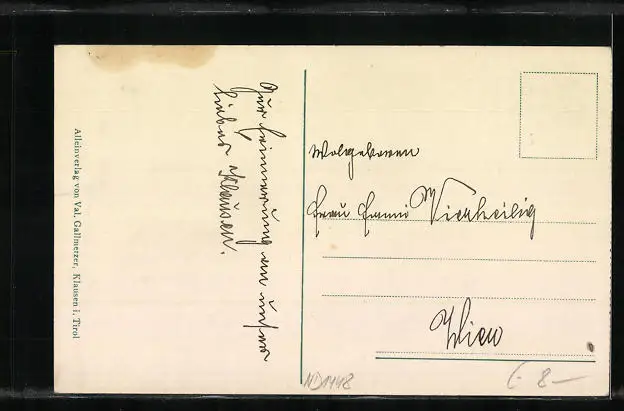 Zur Erinnerung an unser
liebes Klausen.
Wolgeboren
Frau Fanni Vierheilig
Wien
Alleinverlag von Val. Gallmetzer, Klausen i. Tirol
ND1448
€ 8—